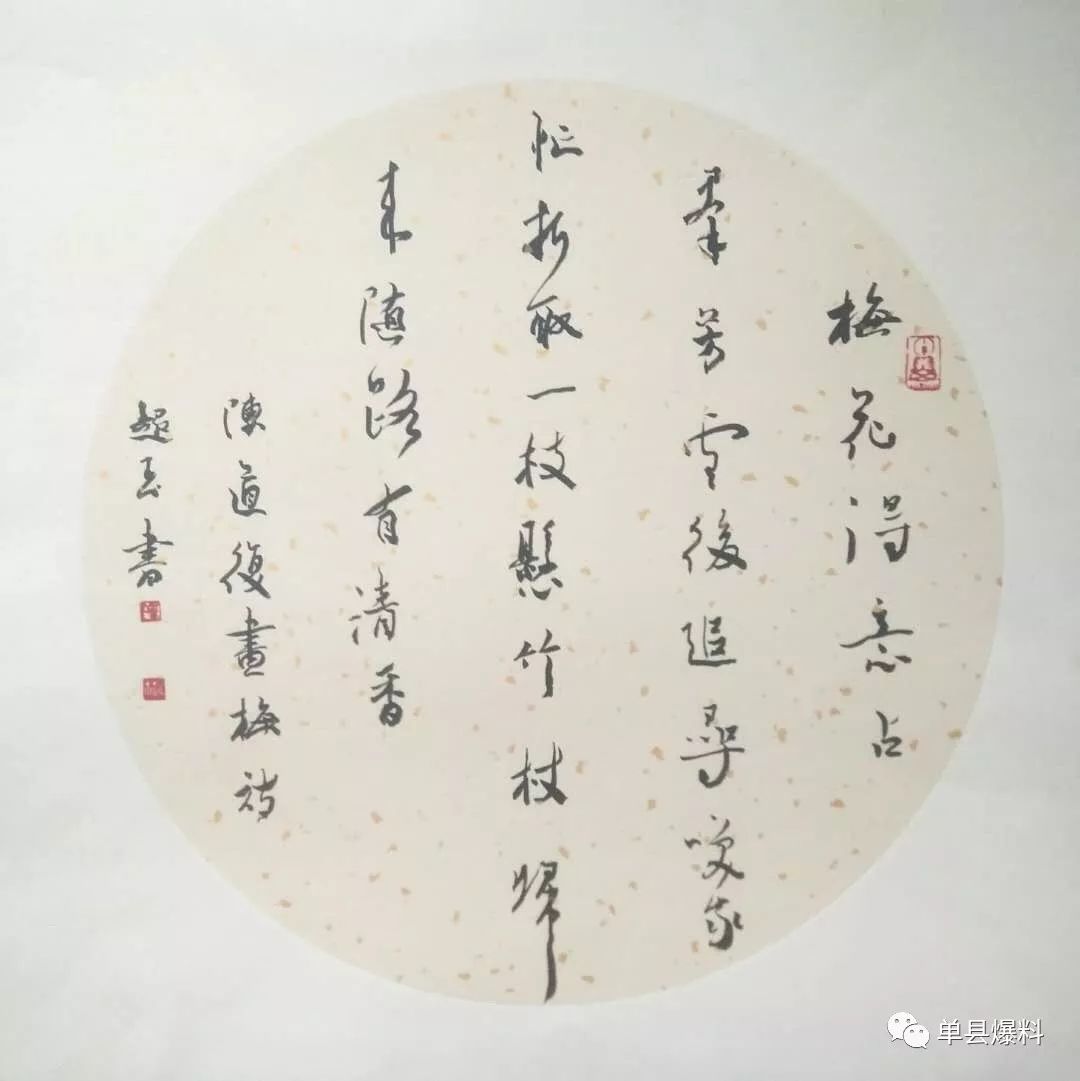 梅花得意占
羣芳雪後追尋笑我
忙折取一枝懸竹杖歸
来隨路有清香
陳道復畫梅詩
超玉書
单县爆料